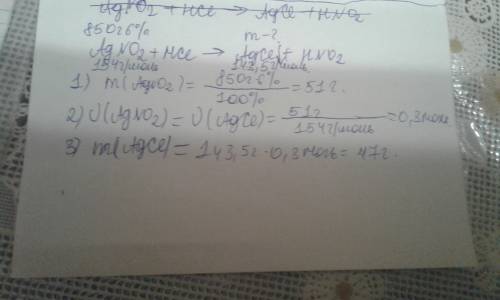 AgNO2 + HCl → AgCl + HNO2
850г 6% m-?
AgNO2 + HCl → AgCl↓ + HNO2
154г/моль 143,5г/моль
1) m(AgNO2) = 850г·6% / 100% = 51г.
2) υ(AgNO2) = υ(AgCl) = 51г / 154г/моль = 0,3моль
3) m(AgCl) = 143,5г·0,3моль = 47г.